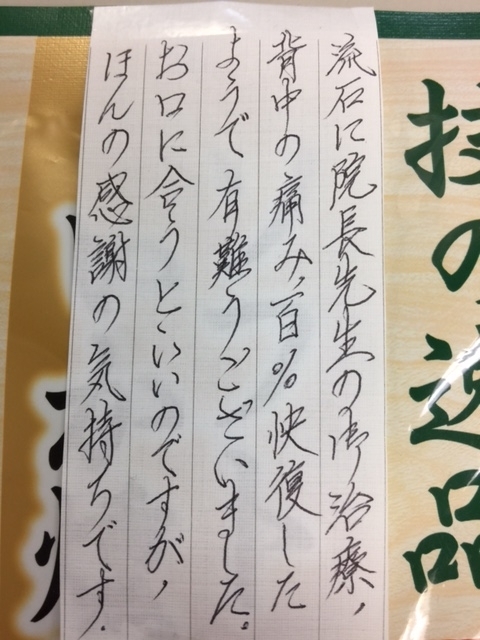 技の逸品
流石に院長先生の御治療,
背中の痛み,百%快復した
ようで有難うございました。
お口に合うといいのですが,
ほんの感謝の気持ちです.